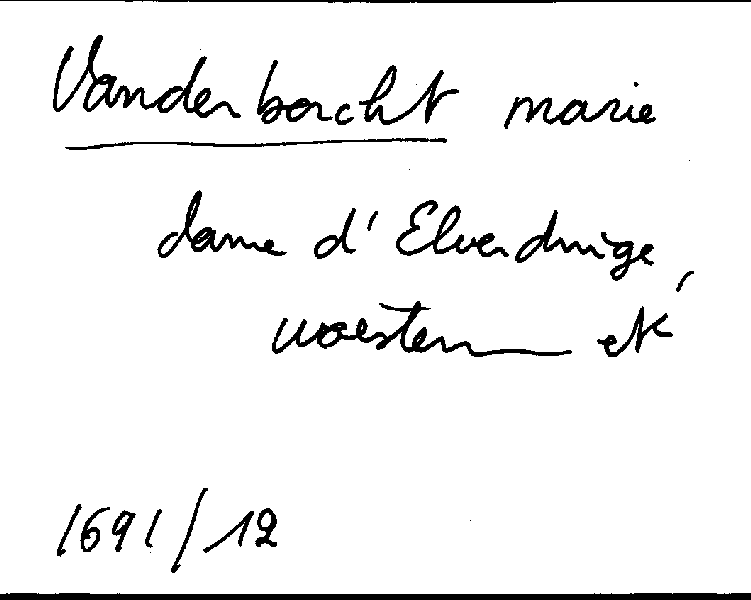 Vanderborcht marie
dame d'Elverdinge,
woesten et
1691/12